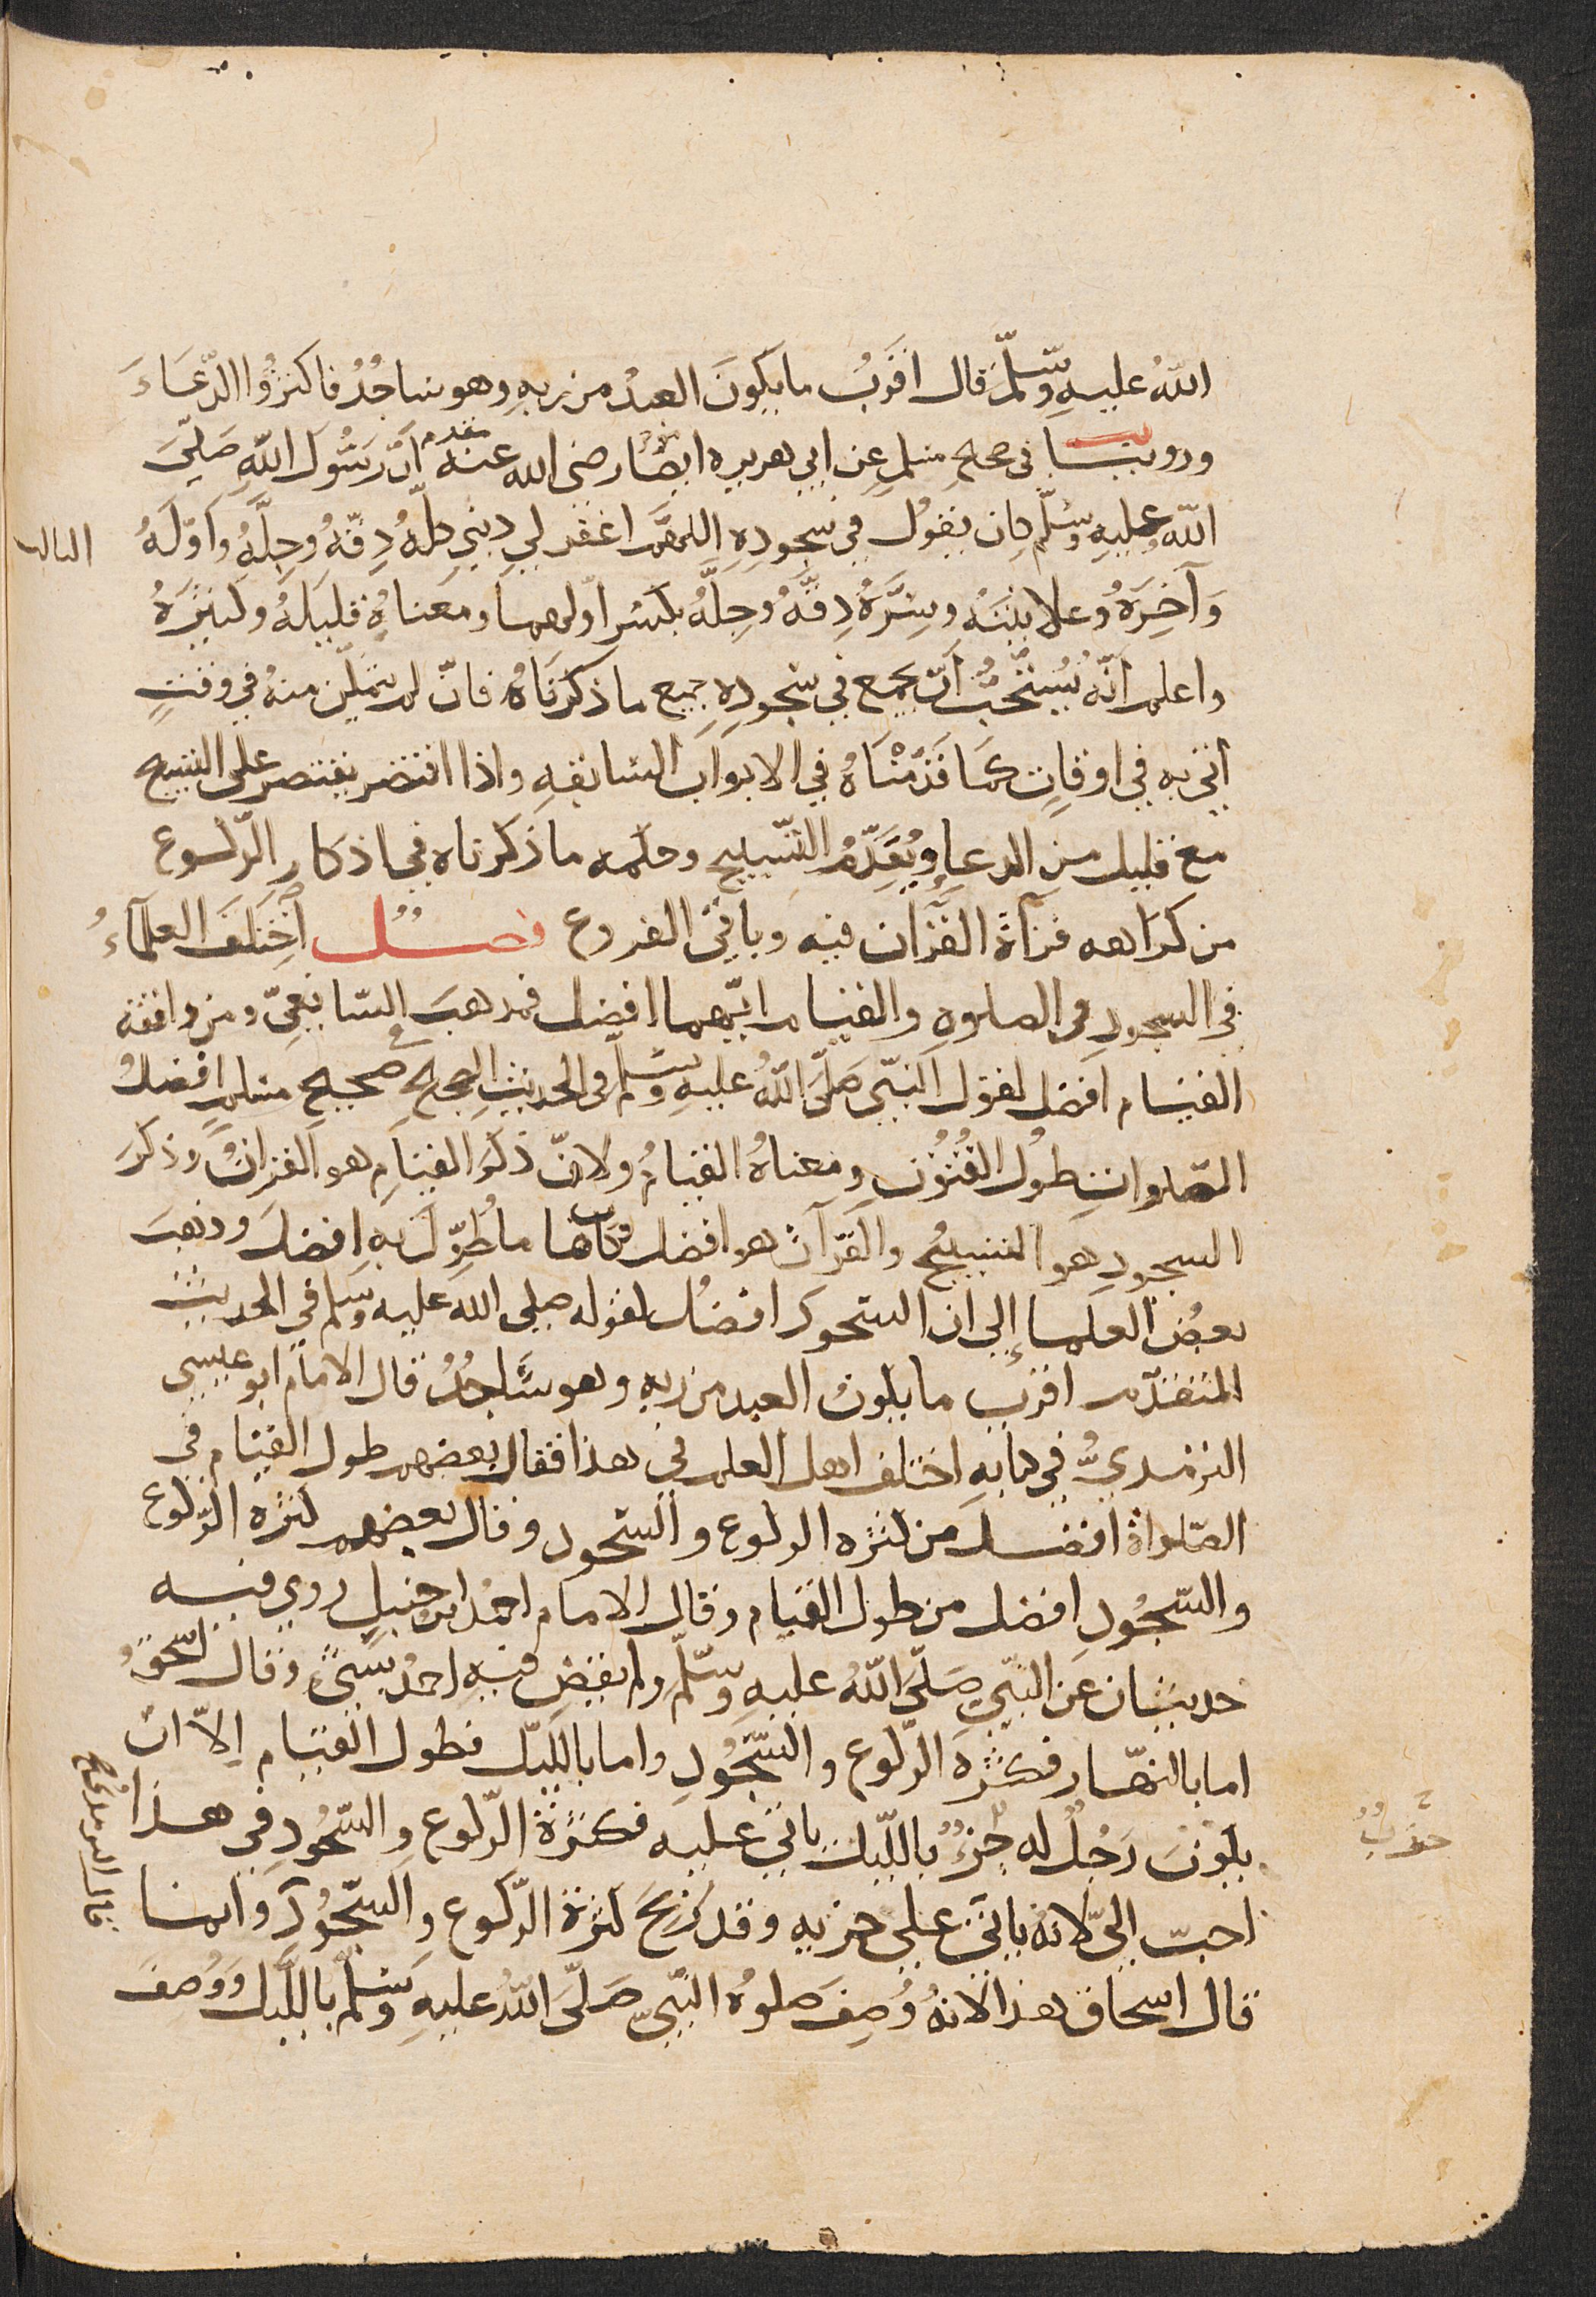 اللهُ عليهِ وسَّلمَّ قال اقرَبُ ما يكونَ العبدُ من ربهِ وهو ساجُدُ فاكثرُوا الدّعَاءَ
وروينَـا في صحيح مسلمٍ عن ابي هريره ايضًا رضى الله عنه انّ رسُولَ اللهِ صَلىَّ
اللهُ عليهِ وسَلّم كان يقولُ في سجودِهِ اللهمَّ اغفرلي ذنبي كلَّهُ دِقّهُ وجِلَّهُ وَاَوّلَهُ
وَآخِرَهُ وعلانيتَهُ وسِرَّهُ دِقّهُ وجِلّهُ بكسرِ اوّلهما ومعناهُ قليلَهُ وكثيرَهُ
واعلم اَنّه يُستحَّبُّ اَنّ يجمع في سجودِهِ جميع ما ذكرنَاهُ فانّ لم يتمكّن منهُ في وقتٍ
اتي به في اوقاتٍ كمَا قدّمْنَاهُ في الابواب السّابقهِ واذا اقتصر يقتصر على التسبيح
مع قليل من الدعاءِ ويُقدّمُ التّسبيح وحكمه ما ذكرناه في اذكار الرّكوع
من كراهه قرآة القرآن فيه وباقى الفروع فصــلُ اَختلَفَ العلمآءُ
في السجودِ في الصلوهِ والقيامِ ايّهما افضل فمذهب الشافعىّ ومن وافقه
القيام افضل لقول النبّى صَلىَّ اللهُ عليهِ وسلّم في الحديث الصحيح في صحيح مسلمٍ افضلُ
الصّلواتِ طولُ القُنُوتِ ومعناهُ القيامُ ولانّ ذكرَ القيامِ هو القرانُ وذكرَ
السجودِ هو التسبيحُ والقرآن هو افضل فكان ما طُوّل بهِ افضل وذهبَ
بعضُ العلماءِ إلي ان السّجود افضل لقوله صلى الله عليه وسلم في الحديث
المتقدّم اقرب ما يكون العبد من ربهِ وهو سَاجدُ قال الامام ابو عيسى
الترمذيُّ في كتابهِ اختلف اهل العلم في هذا فقال بعضهم طول القيام في
الصّلواة افضــل من كثره الركوع والسّجود وقال بعضهم كثره الرّكوع
والسّجُودِ افضل من طول القيام وقال الامام احمدُ ابن حنبلٍ روي فيــه
حديثان عَن النّبيّ صَلّى اللهُ عليهِ وسّلّم ولم يقضِ فيهِ احمدُ بشىءٍ وقال اسحقُ
اما بالنهّار فكثرة الرّكوع والسّجُودِ واما بالليّل فطول القيام اِلاّ ان
يكونَ رَجُلُ له جزءُ بالليّل ياتي عـليه فكثرة الرّكوع والسّجُودِ في هــذا
احبّ الىّ لانّه ياتي على حزبه وقد رَبحَ كثرة الرّكوع والسّجُودَ وانمـا
قال اسحاق هذا لانهُ وُصِفَ صلوهُ النبّيِ صَلّى اللهُ عليهِ وسلّمَ بالليّل وَوُصفَ